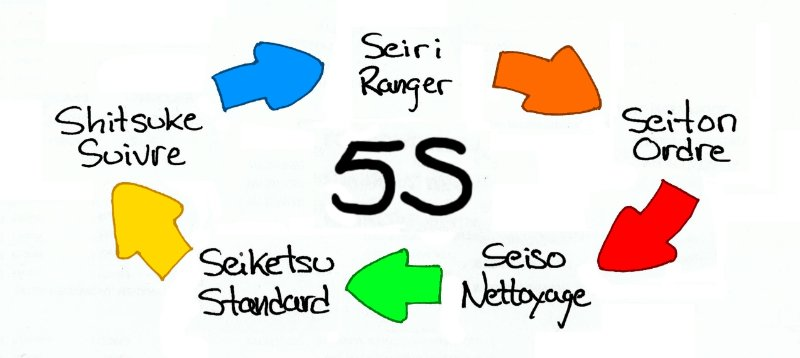 Seiri
Ranger
Seiton
Ordre
Seiso
Nettoyage
Seiketsu
Standard
Shitsuke
Suivre
5S